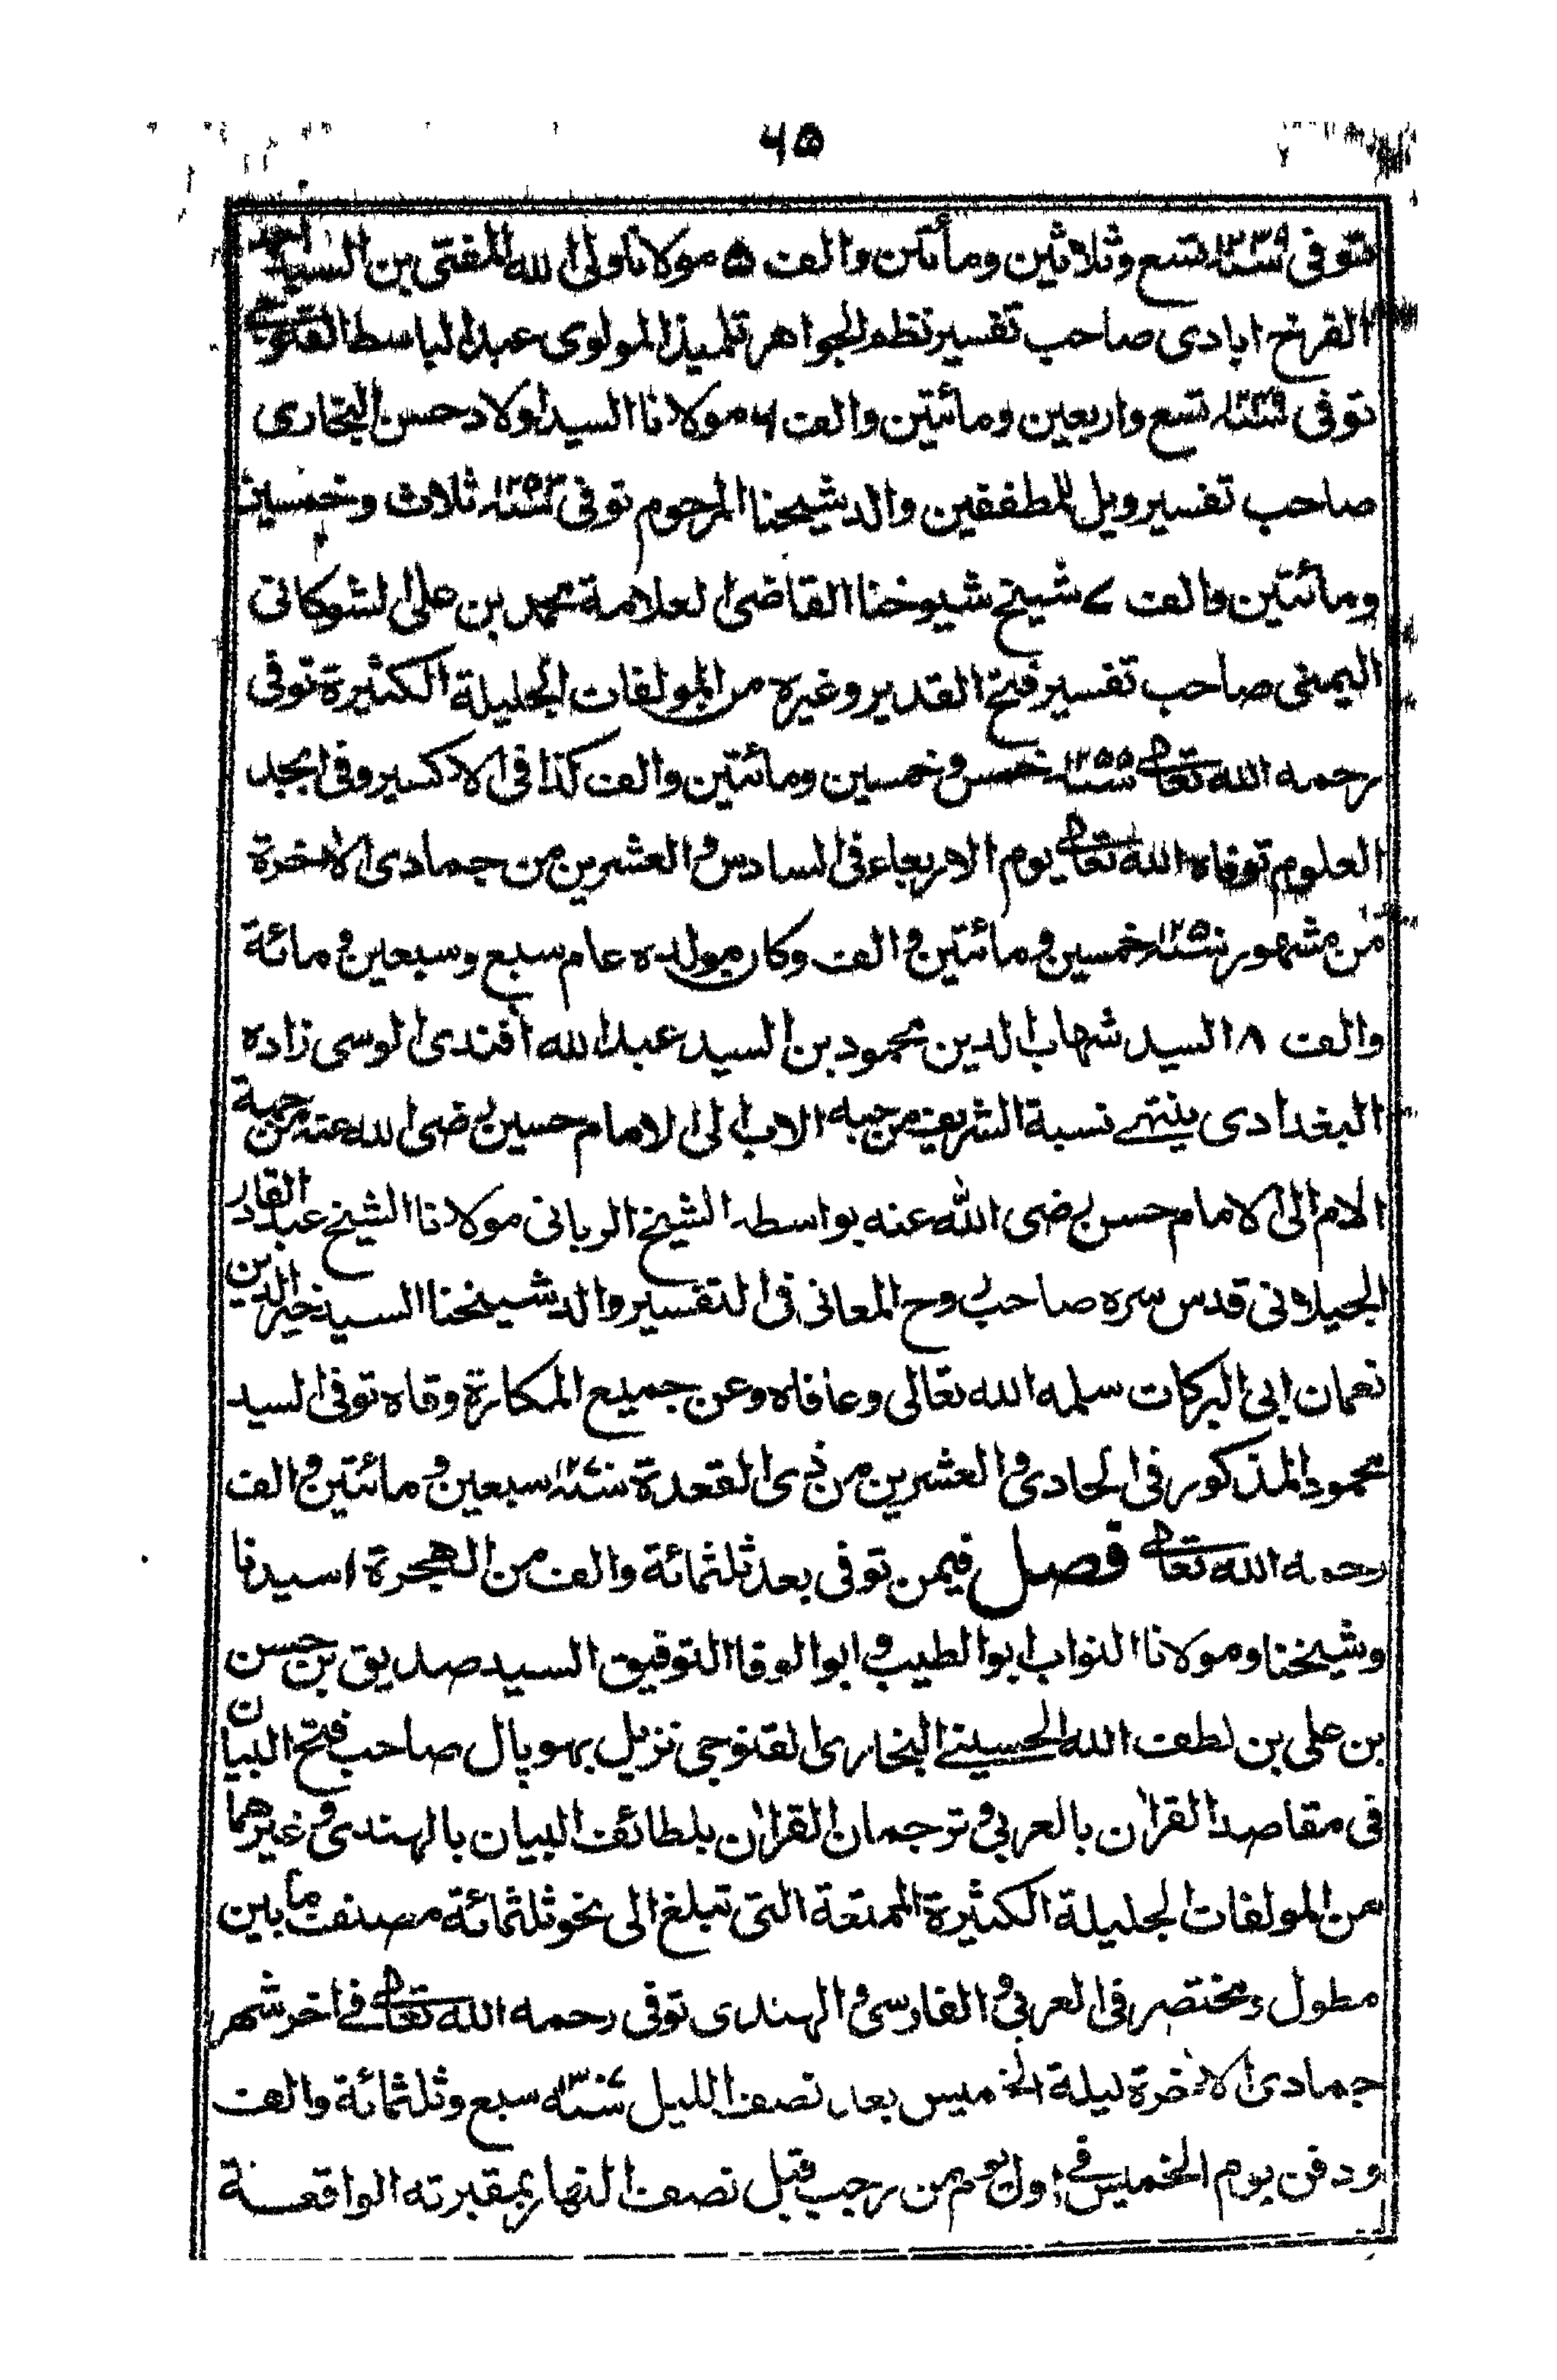 ٦٥
توفى ١٢٣٩سنة تسع وثلاثين ومأتين والف ٥ مولانا ولى الله المفتى بن السيد احمد
الفرخ ابادى صاحب تفسير نظم الجواهر تلميذ المولوى عبد الباسط القنوجى
توفى سنة تسع واربعين ومائتين والف ٦ مولانا السيد اولاد حسن البخارى
صاحب تفسير ويل للمطففين والد شيخنا المرحوم توفى ١٢٥٣سنة ثلاث وخمسين
ومائتين والف ٧ شيخ شيوخنا القاضى العلامة محمد بن على الشوكانى
اليمنى صاحب تفسير فتح القدير وغيره من المولفات الجليلة الكثيرة توفى
رحمه الله تعالى ١٢٥٥سنة خمس وخمسين ومائتين والف كذا فى الاكسير وفى ابجد
العلوم توفاه الله تعالى يوم الاربعاء فى السادس والعشرين من جمادى الاخرة
من مشهور ١٢٥٠سنة خمسين ومائتين والف وكان مولده عام سبع وسبعين ومائة
والف ٨ السيد شهاب الدين محمود بن السيد عبد الله أفندى الوسى زاده
البغدادى ينتهى نسبة الشريف من جهة الاب الى الامام حسين رضى الله عنه من جهة
الام الى الامام حسن رضى الله عنه بواسطه الشيخ الربانى مولانا الشيخ عبد القادر
الجيلانى قدس سره صاحب روح المعانى فى التفسير والد شيخنا السيد خير الدين
نعمان ابى البركات سلمه الله تعالى وعافاه وعن جميع المكارة وقاه توفى السيد
محمود المذكور فى الحادى والعشرين من ذى القعدة ١٢٧٠سنة سبعين ومائتين والف
رحمه الله تعالى فصل فيمن توفى بعد ثلثمائة والف من الهجرة ١ سيدنا
وشيخنا ومولانا النواب ابو الطيب و ابو الوفا التوفيق السيد صديق بن حسن
بن على بن لطف الله الحسينى البخارى القنوجى نزيل بهوپال صاحب فتح البيان
فى مقاصد القران بالعربى و ترجمان القران بلطائف البيان بالهندى و غيرهما
من المولفات الجليلة الكثيرة الممتعة التى تبلغ الى نحو ثلثمائة مصنف ما بين
مطول ومختصر فى العربى و الفارسى و الهندى توفى رحمه الله تعالى فى اخر شهر
جمادى الاخرة ليلة الخميس بعد نصف الليل ١٣٠٧سنة سبع وثلثمائة والف
ودفن يوم الخميس فى اول يوم من رجب قبل نصف النهار بمقبرته الواقعة